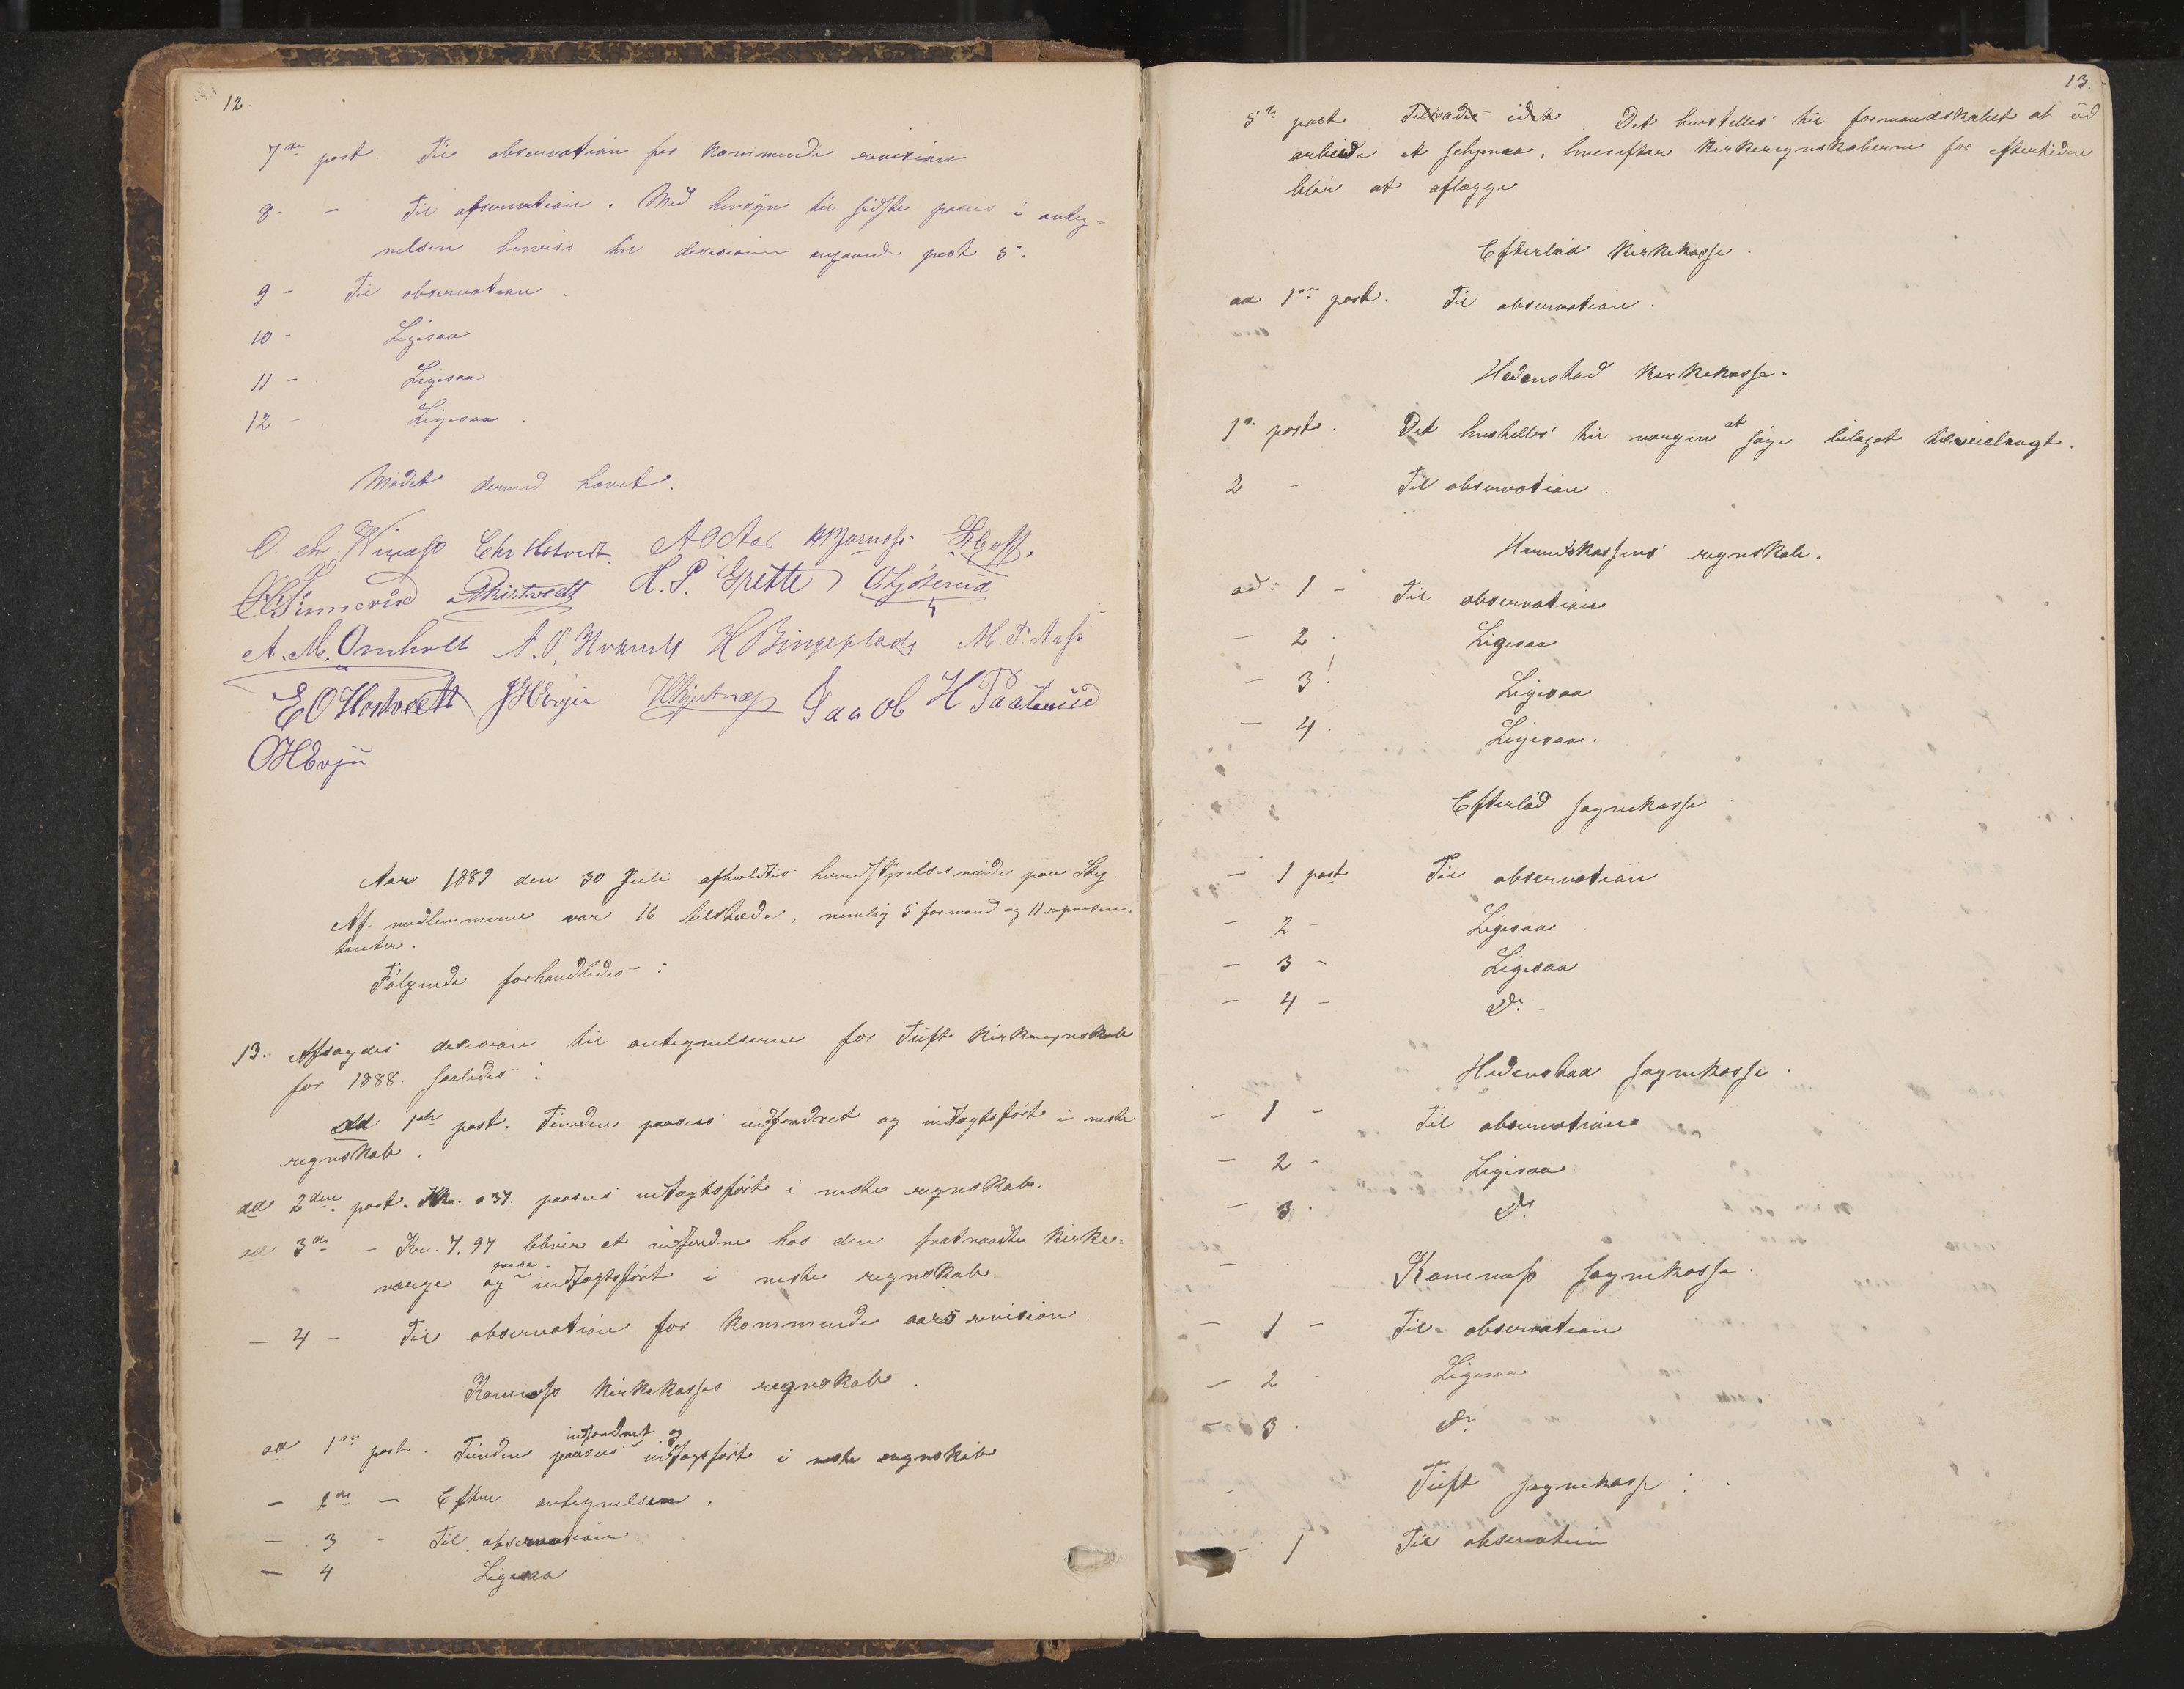 12.
7de post Til observation for kommende revision
8 - - Til observation. Med hensyn til sidste passus i anteg-
nelsen henvises til decisionen angaaende post 5.
9 - Til observation.
10 - Ligesaa
11 - Ligesaa
12 - Ligesaa.
Mødet dermed hævet.
O. Chr. Chr Hostvedt. A O Aas
H. P. Grette
A. M. Omholt A. O. H Bingeplads M. P. Aass
E O Hostvedt J H Evju Jacob H Paaterud
O H Evju
Aar 1889 den 30 Juli afholdtes herredstyrelsesmøde paa
Af medlemmerne var 16 tilstede, nemlig 5 formænd og 11 repræsen-
tanter.
Følgende forhandledes:
13. Afsagdes decision til antegnelserne for Tuft kirkeregnskab
for 1888 saaledes:
ad 1ste post. Tienden paasees indfordret og indtægtsført i næste
regnskab.
ad 2den post. Kr. 0 37. paasees indtægtsført i næste regnskab.
ad 3de - Kr. 7,97 bliver at indfordre hos den fratraadte kirke-
værge og paasee indtægtsført i næste regnskab.
- 4 - Til observation for kommende aars revision.
Komnæs kirkekasses regnskab.
ad 1ste post. Tienden paasees indfordret og indtægtsført i næste regnskab
- 2de - Efter antegnelsen.
- 3 - Til observation
- 4 Ligesaa
13.
5te post Det henstilles til formandskabet at ud
arbeide et schema, hvorefter kirkeregnskaberne for eftertiden
blir at aflægge
Efteløt kirkekasse.
ad 1ste post. Til observation.
Hedenstad kirkekasse.
1ste post. Det henstilles til værgen at søge bilaget tilveiebragt.
2 - Til observation.
Herredskassens regnskab.
ad: 1 - Til observation
- 2 - Ligesaa
- 3 - Ligesaa
- 4 - Ligesaa.
Efteløt sognekasse
- 1 post Til observation
- 2 - Ligesaa
- 3 - Ligesaa
- 4 - Do. -
Hedenstad sognekasse.
- 1 - Til observation
- 2 - Ligesaa
- 3 - Do.
Komnæs sognekasse.
- 1 - Til observation
- 2 - Ligesaa
- 3 - Do.
Tuft sognekasse:
- 1 Til observation